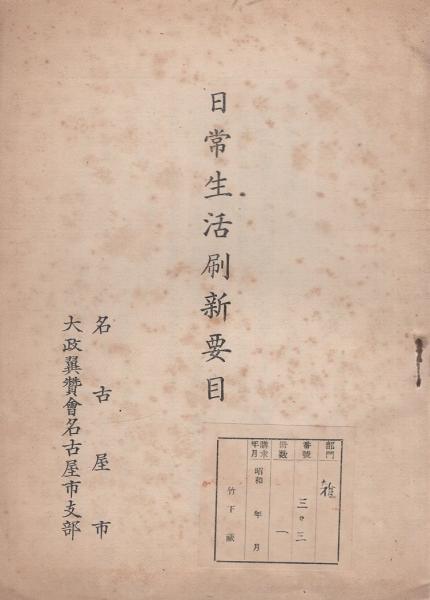 日常生活刷新要目
名古屋市
大政翼賛會名古屋市支部
部門 雑
番號 三ノ三
冊数 一
購求年月 昭和 年 月
竹下蔵